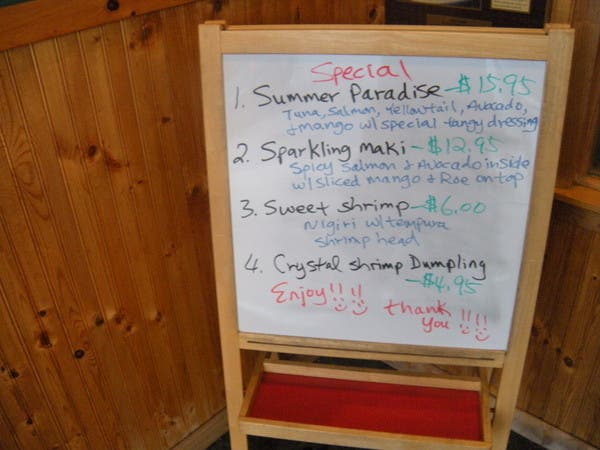 Special
1. Summer Paradise - $15.95
Tuna, Salmon, Yellowtail, Avocado,
& mango w/ special tangy dressing
2. Sparkling maki - $12.95
Spicy Salmon & Avocado inside
w/ sliced mango & Roe on top
3. Sweet shrimp - $6.00
Nigiri w/ tempura
shrimp head
4. Crystal shrimp Dumpling
- $4.95
Enjoy!!!!
thank
you !!!!